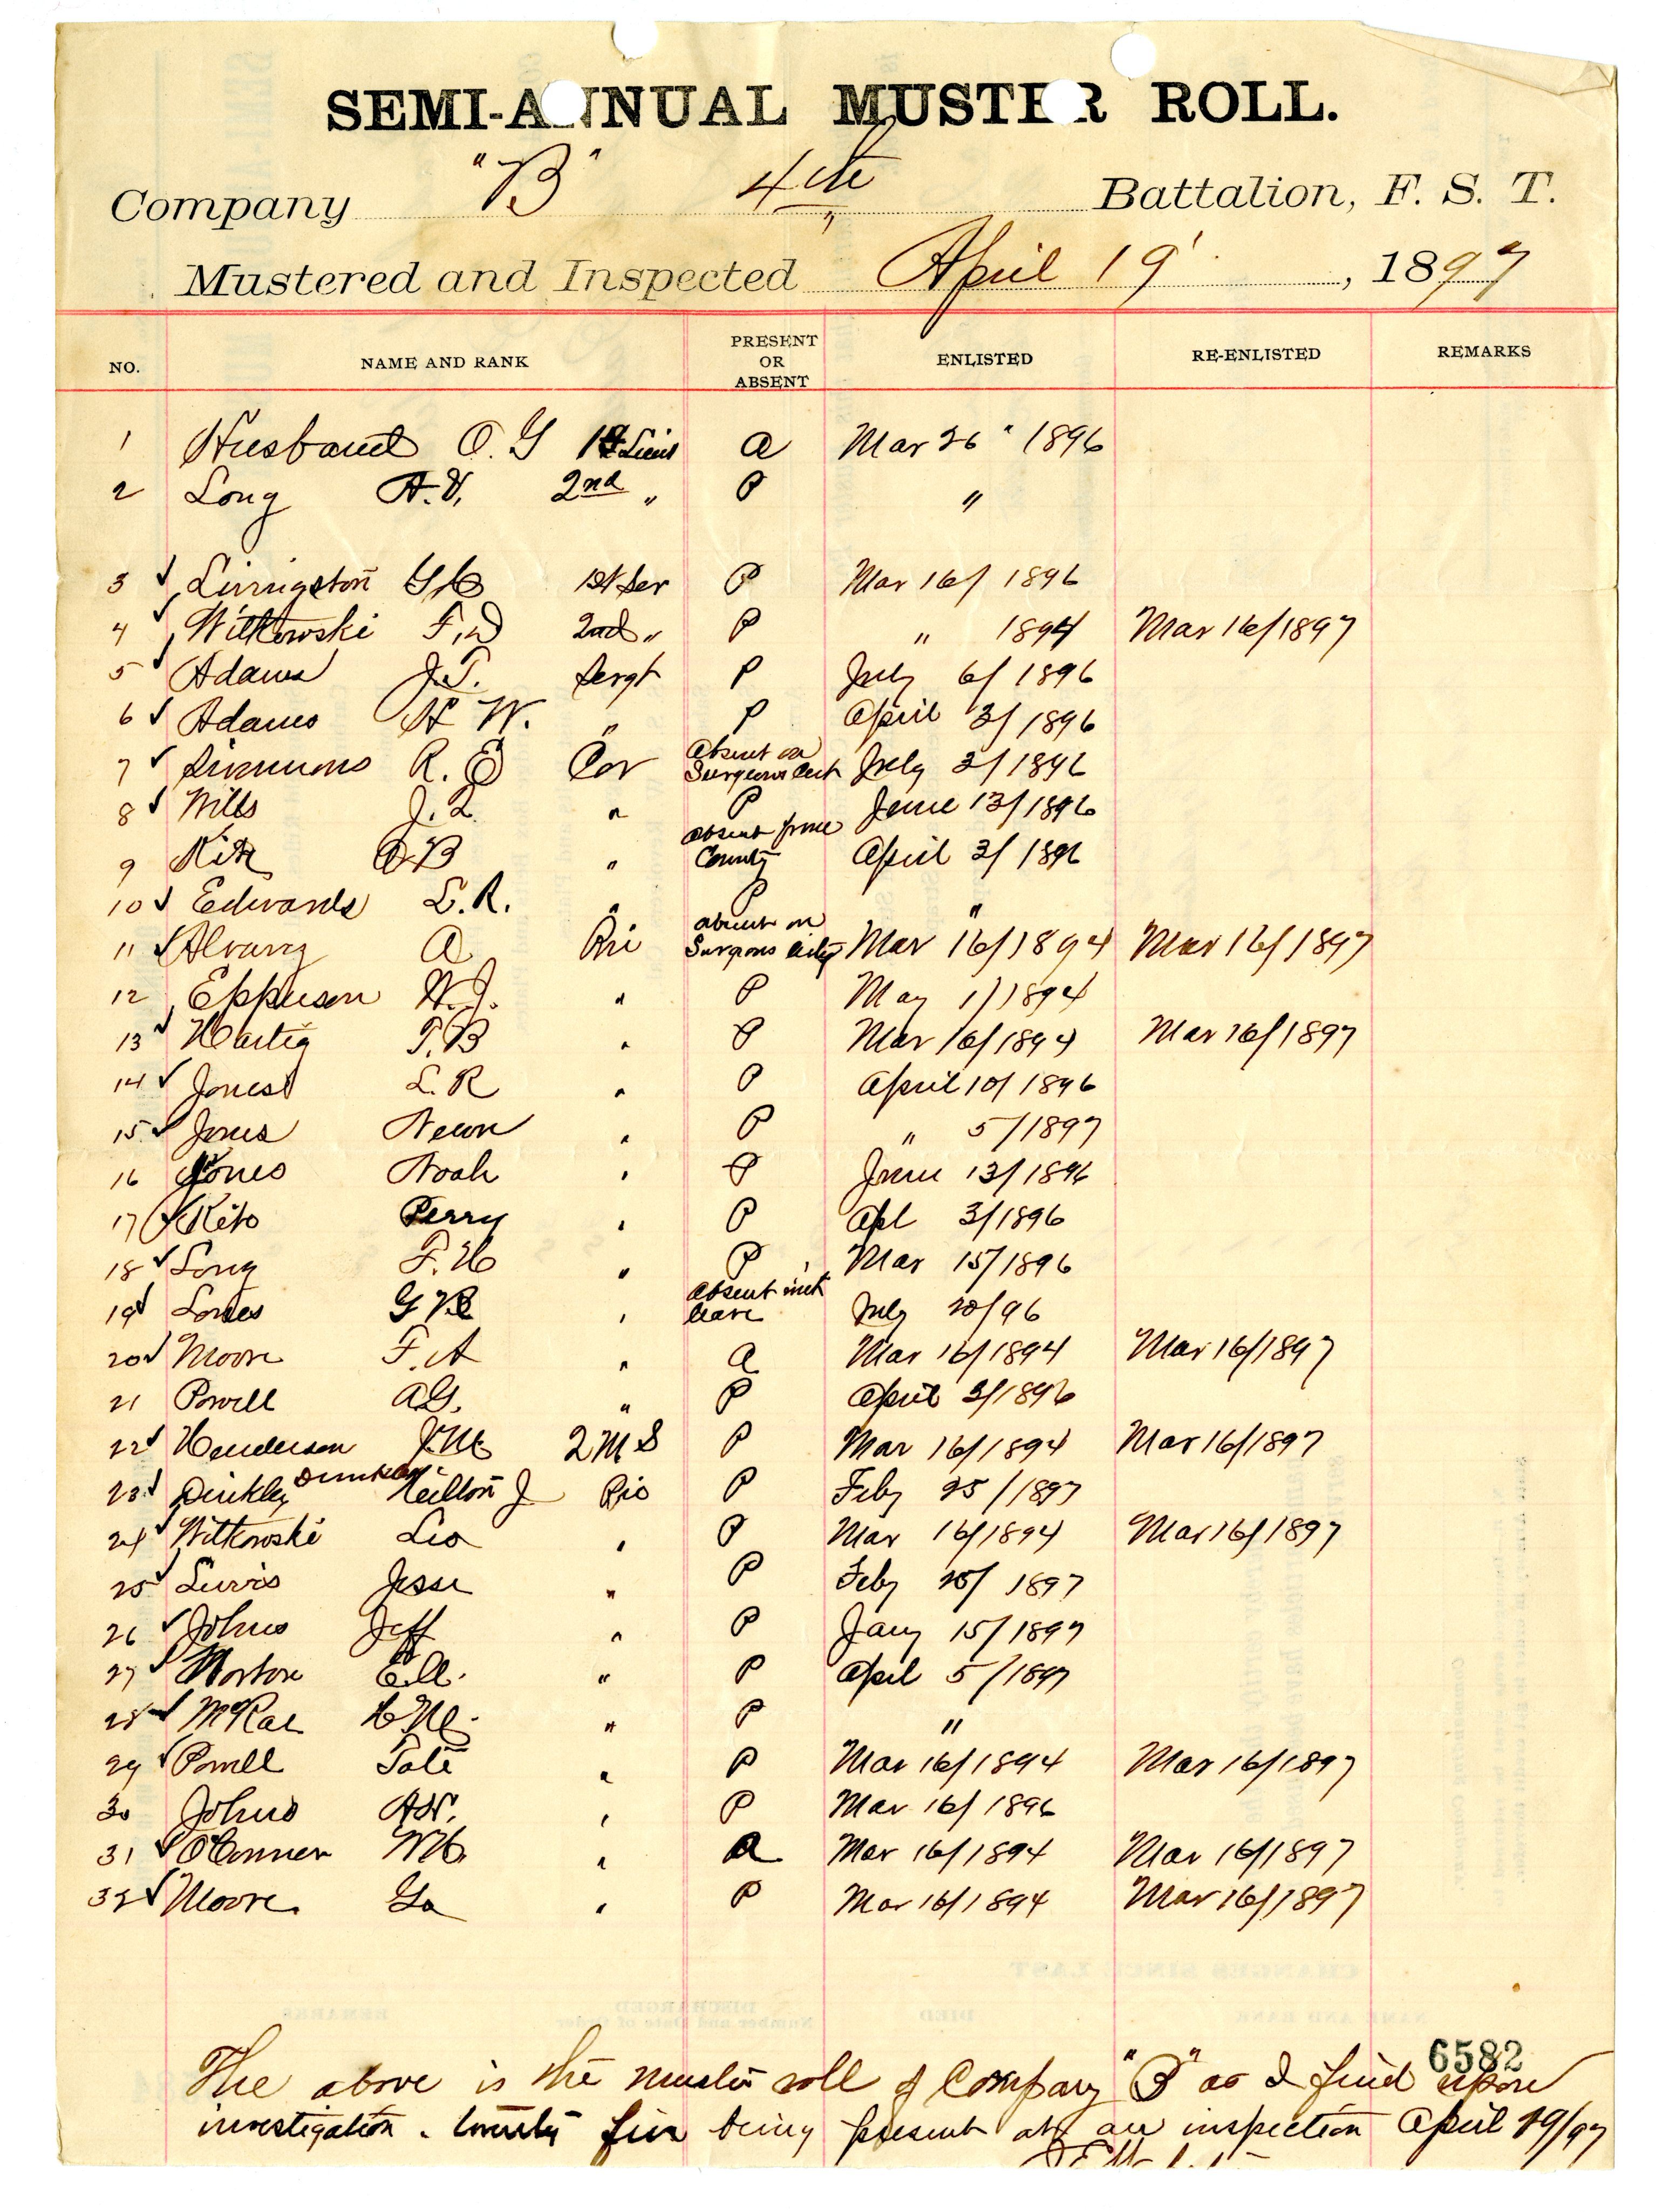 SEMI-ANNUAL MUSTER ROLL.
Company "B" 4th Battalion, F. S. T.
Mustered and Inspected April 19, 1897
NO. NAME AND RANK PRESENT OR ABSENT ENLISTED RE-ENLISTED REMARKS
1 Husband O. G 1st Lieut a Mar 26 " 1896
2 Long A. V. 2nd " P "
3 Livingston 1st Ser P Mar 16/ 1896
4 Witkowski F. D 2nd " P " 1894 Mar 16/1897
5 Adams J. T. Sergt P July 6/ 1896
6 Adams H W. " P April 3/ 1896
7 Simmons R. E Cor Absent on Surgeons Cert July 3/1896
8 Wills J. L. " P June 13/1896
9 B " absent from County April 3/ 1896
10 Edwards L. R. " P "
11 Alvarez A Pri absent on Surgeons Mar 16/1894 Mar 16/1897
12 Epperson W. J. " P May 1/1894
13 Hartig T. B " P Mar 16/1894 Mar 16/1897
14 Jones L. R " P April 10/ 1896
15 Jones " P " 5/1897
16 Jones Noah " P June 13/1896
17 Perry " P Apl 3/1896
18 Long F. H " P Mar 15/1896
19 G " Absent with leave July 20/96
20 Moore F. A " a Mar 16/1894 Mar 16/1897
21 Powell A G. " P April 3/1896
22 Henderson J. M. 2 M S P Mar 16/1894 Mar 16/1897
23 Dinkley J P Feby 25/1897
24 Witkowski Leo " P Mar 16/1894 Mar 16/1897
25 Jesse " P Feby 25/ 1897
26 Johns Jeff " P Jany 15/1897
27 Norton " P April 5/1897
28 McRae " P "
29 Powell Tate " P Mar 16/1894 Mar 16/1897
30 Johns A W. " P Mar 16/ 1896
31 O'Conner W " a Mar 16/1894 Mar 16/1897
32 Moore Geo " P Mar 16/1894 Mar 16/1897
6582
The above is the muster roll of Company "B" as I find upon
investigation. being present at an inspection April 19/97